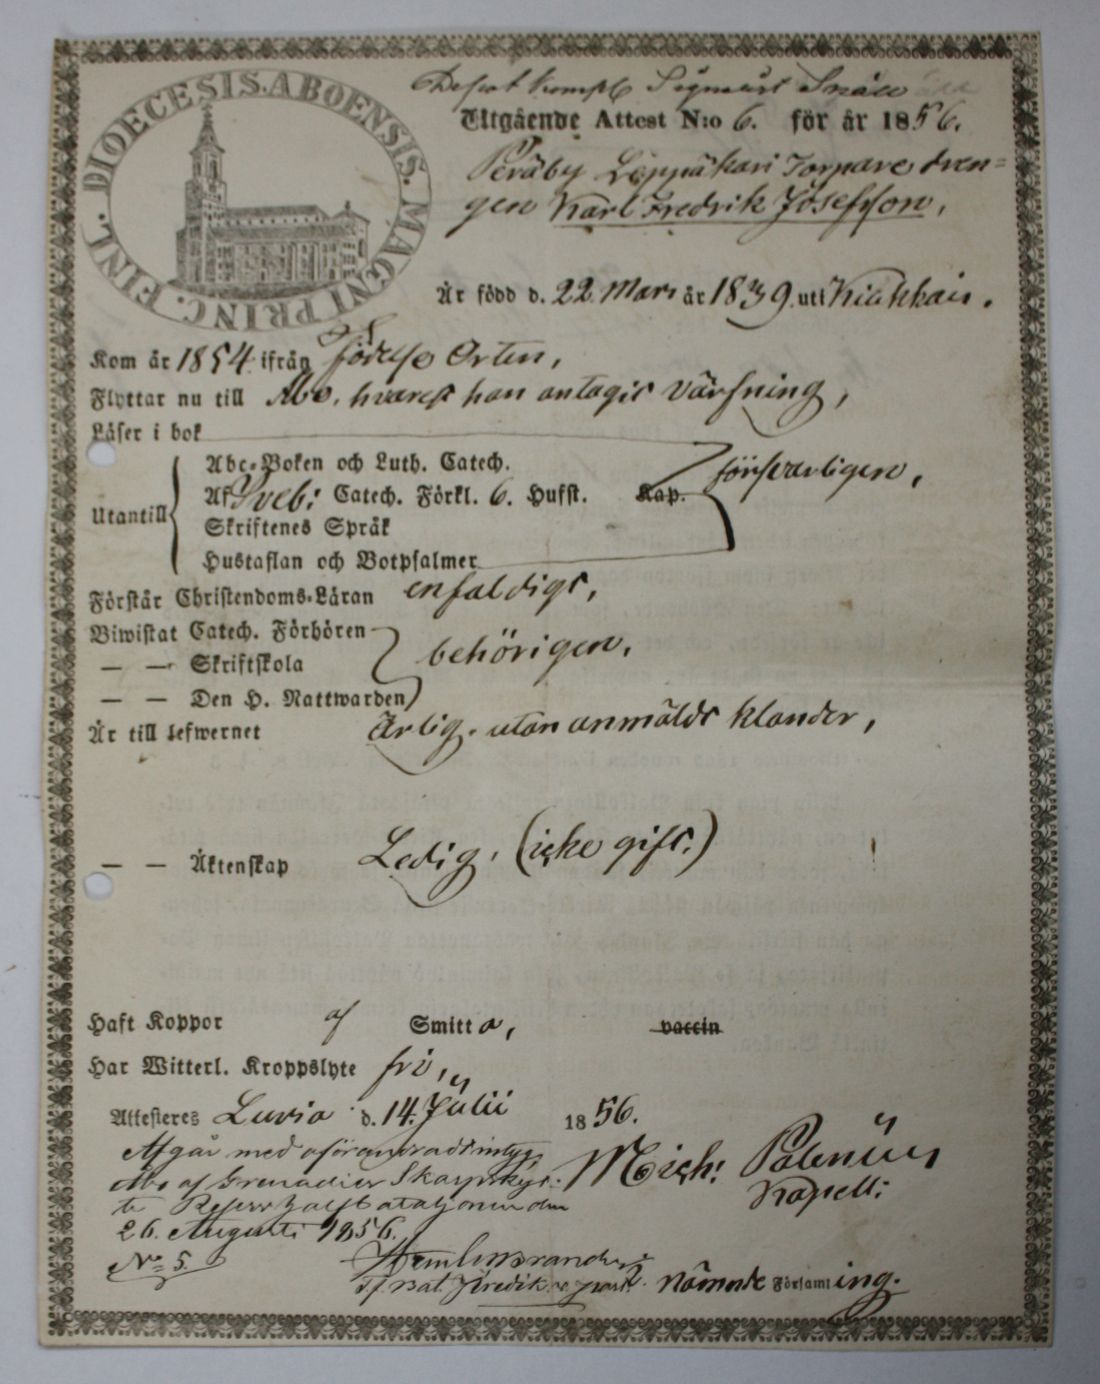 DIOECESIS.ABOENSIS.MAGNI PRINC.FINL.
Utgående Attest N:o 6. för år 1856.
Peräby Leppäkari Torpare dren=
gen Karl Fredrik Josefsson,
Är född d. 22 Mars år 1839 uti Kiukkais.
Kom år 1854 ifrån födelse Orten,
Flyttar nu till Åbo, hvarest han antagit värfning,
Läser i bok
Abc-Boken och Luth. Catech.
försvarligen,
Utantill
Af Sveb: Catech. Förkl. 6. Hufst. Kap.
Skriftenes Språk
Hustaflan och Botpsalmer
Förstår Christendoms-Läran enfaldigt,
Biwistat Catech. Förhören
— — Skriftskola behörigen,
— — Den H. Nattwarden
Är till lefwernet Ärlig, utan anmäldt klander,
— — Äktenskap Ledig, (icke gift.)
Haft Koppor af Smitta, vaccin
Har Witterl. Kroppslyte fri,
Attesteres Luvia d. 14. Julii 1856.
Mich: Polenius
Kapell:
Afgår med
Åbo af Grenadier Skarpskyt-
te Reserv Bataljonen den
26. Augusti 1856.
No 5.
Nämnde Församling.